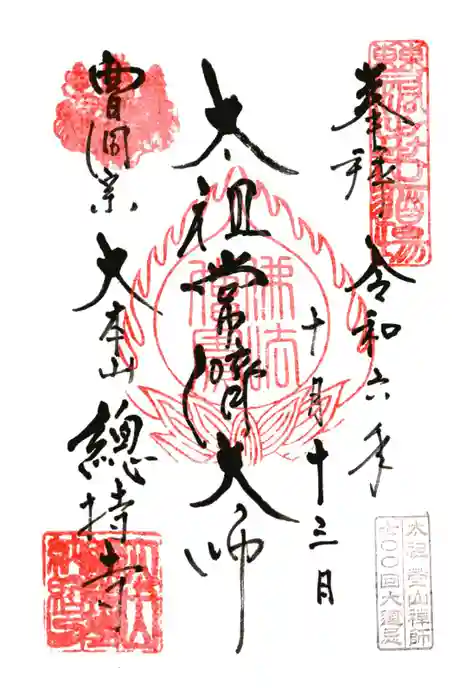 奉拝
令和六年
十月十三日
太祖常濟大師
曹洞宗
大本山
總持寺
佛法僧寶
太祖瑩山禪師
七〇〇回大遠忌